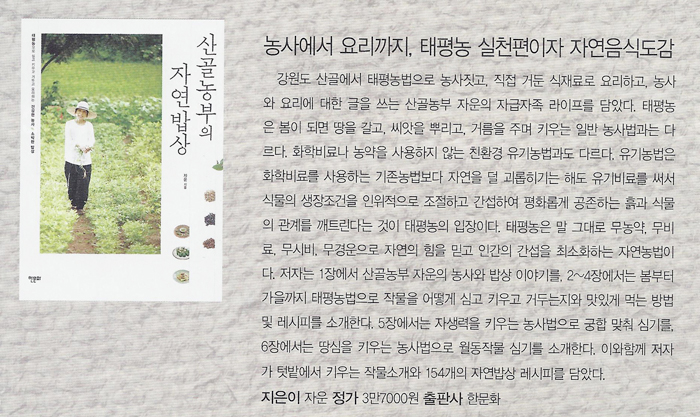 산골농부의
자연밥상
자운 지음
한문화
농사에서 요리까지, 태평농 실천편이자 자연음식도감
강원도 산골에서 태평농법으로 농사짓고, 직접 거둔 식재료로 요리하고, 농사
와 요리에 대한 글을 쓰는 산골농부 자운의 자급자족 라이프를 담았다. 태평농
은 봄이 되면 땅을 갈고, 씨앗을 뿌리고, 거름을 주며 키우는 일반 농사법과는 다
르다. 화학비료나 농약을 사용하지 않는 친환경 유기농법과도 다르다. 유기농법은
화학비료를 사용하는 기존농법보다 자연을 덜 괴롭히기는 해도 유기비료를 써서
식물의 생장조건을 인위적으로 조절하고 간섭하여 평화롭게 공존하는 흙과 식물
의 관계를 깨트린다는 것이 태평농의 입장이다. 태평농은 말 그대로 무농약, 무비
료, 무시비, 무경운으로 자연의 힘을 믿고 인간의 간섭을 최소화하는 자연농법이
다. 저자는 1장에서 산골농부 자운의 농사와 밥상 이야기를, 2~4장에서는 봄부터
가을까지 태평농법으로 작물을 어떻게 심고 키우고 거두는지와 맛있게 먹는 방법
및 레시피를 소개한다. 5장에서는 자생력을 키우는 농사법으로 궁합 맞춰 심기를,
6장에서는 땅심을 키우는 농사법으로 월동작물 심기를 소개한다. 이와함께 저자
가 텃밭에서 키우는 작물소개와 154개의 자연밥상 레시피를 담았다.
지은이 자운 정가 3만7000원 출판사 한문화